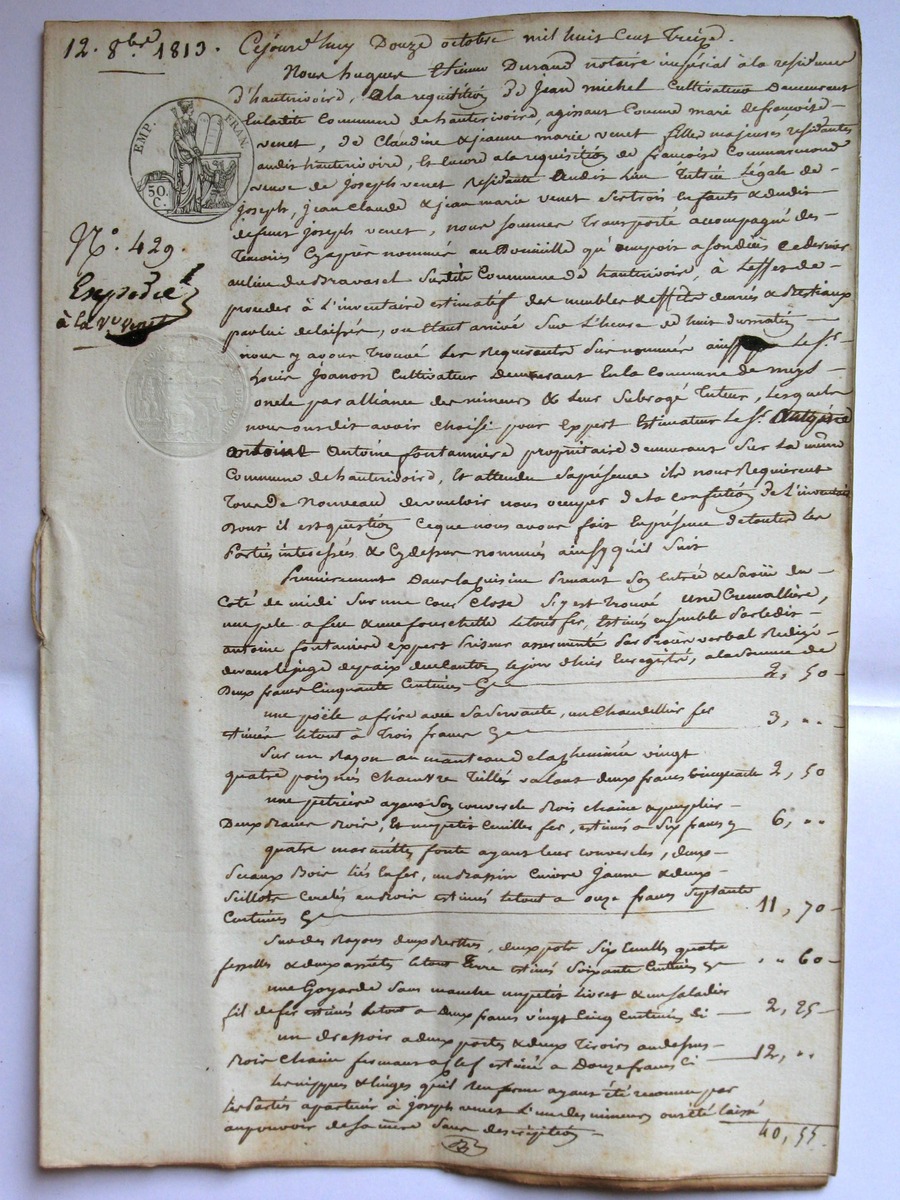 12. 8bre 1813.
EMP. FRAN.
50. C.
N°. 429.
Expédié
à la Ve venet
Cejourd'huy Douze octobre mil huit Cent Treize.
Nous hugues Etienne Durand notaire impérial à la residence
d'hauterivoire, a la requisition de jean michel Cultivateur Demeurant
En ladite Commune de hauterivoire, agissant Comme mari de françoise
venet, de Claudine & jeanne marie venet filles majeures residantes
audit hauterivoire, Et Encore a la requisition de françoise Commarmond
veuve de joseph venet residante audit lieu Tutrice légale de
joseph, jean Claude & jean marie venet ses trois enfants & dudit
defunt joseph venet, nous sommes Transporté accompagné des
Témoins Cy après nommés au Domicille qu' occupoit a son décès ce dernier
au lieu de Bravaset Susdite Commune de hauterivoire, à l'effet de
proceder à L'inventaire estimatif des meubles & effets denrés & Bestiaux
par lui delaissés, ou Etant arrivé Sur L'heure de huit du matin
nous y avons Trouvé les Requerants Sus nommés ainsy Le Sr.
Louis Joanon Cultivateur Demeurant En la Commune de meys
oncle par alliance des mineurs & leur Subrogé Tuteur, Lesquels
nous ont dit avoir choisi pour Expert Estimateur Le Sr.
antoine Antoine fontanière proprietaire demeurant Sur La même
Commune de hauterivoire, Et attendu Sa présence ils nous Requierent
Tous de Nouveau de vouloir nous occuper de la Confection de L'inventaire
Dont il est question Ce que nous avons fait En présence de toutes Les
Parties interessées & Cy dessus nommés ainsy qu'il Suit
Premierement Dans la Cuisine Prenant Son Entrée & Saÿë du
Coté de midi Sur une Cour Close S'y est Trouvé une Cremallière,
une pele a feu & une fourchette le tout fer, Estimés ensemble Par ledit
antoine fontanière expert Priseur assermenté Par Procès verbal Redigé
devant le juge de paix du Canton le jour d'hier Enregistré, a la Somme de
Deux francs Cinquante Centimes Cy 2, 50
une poële a frire avec Sa Servante, un Chandellier fer
Estimés le tout à Trois francs Cy 3, ..
Sur un Rayon au manteau de la Cheminée vingt
quatre poignés Chanvre Tillés valant deux francs Cinquante 2, 50
une petriere ayant Son couvercle Bois chaine & peuplier
Deux Bancs Bois, Et un petit Cuiller fer, estimés a Six francs Cy 6, ..
quatre marmittes fonte ayant leur couvercles, deux
Sceaux Bois liés En fer, un Bassin Cuivre Jaune & deux
Seillots Cerclés en Bois estimés le tout a onze francs Septante
Centimes Cy 11, 70
Sur des Rayons deux Berthes, deux pots Six Ecuelles quatre
fesselles & deux assiettes le tout Terre estimés Soixante Centimes Cy .. 60
une Goyarde Sans manche un petit Livret & un Saladier
fil de fer estimés le tout a Deux francs vingt Cinq Centimes Ci 2, 25
un dressoir a deux portes & deux Tiroirs au dessus
Bois Chaine fermant a Clef estimé a Douze francs Ci 12, ..
Les nippes & linges qu'il Renferme ayant été reconnu par
les Parties apartenir à joseph venet L'un des mineurs ont été laissé
au pouvoir de Sa mère Sans description
40, 55